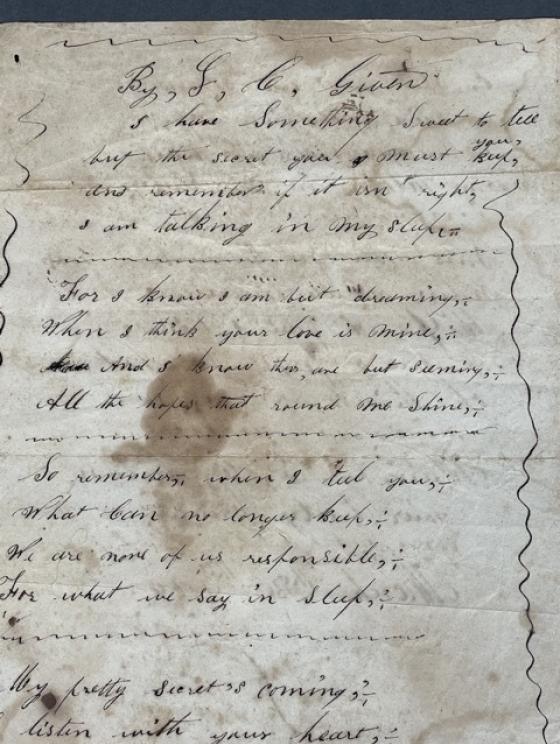 By, S, C, Given
I have Something Sweet to tell
you,
but the secret you must keep,
and remember if it isn't right,
I am talking in my sleep
For I know I am but dreaming,
When I think your love is mine,
And I know they are but seeming,
All the hopes that round me Shine,
So remember, when I tell you,
What Can no longer keep,
We are none of us responsible,
For what we say in Sleep,
My pretty secret's coming,
listen with your heart,